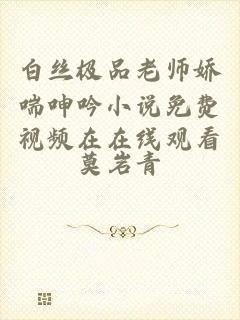 白丝极品老师娇
喘呻吟小说免费
视频在在线观看
莫岩青